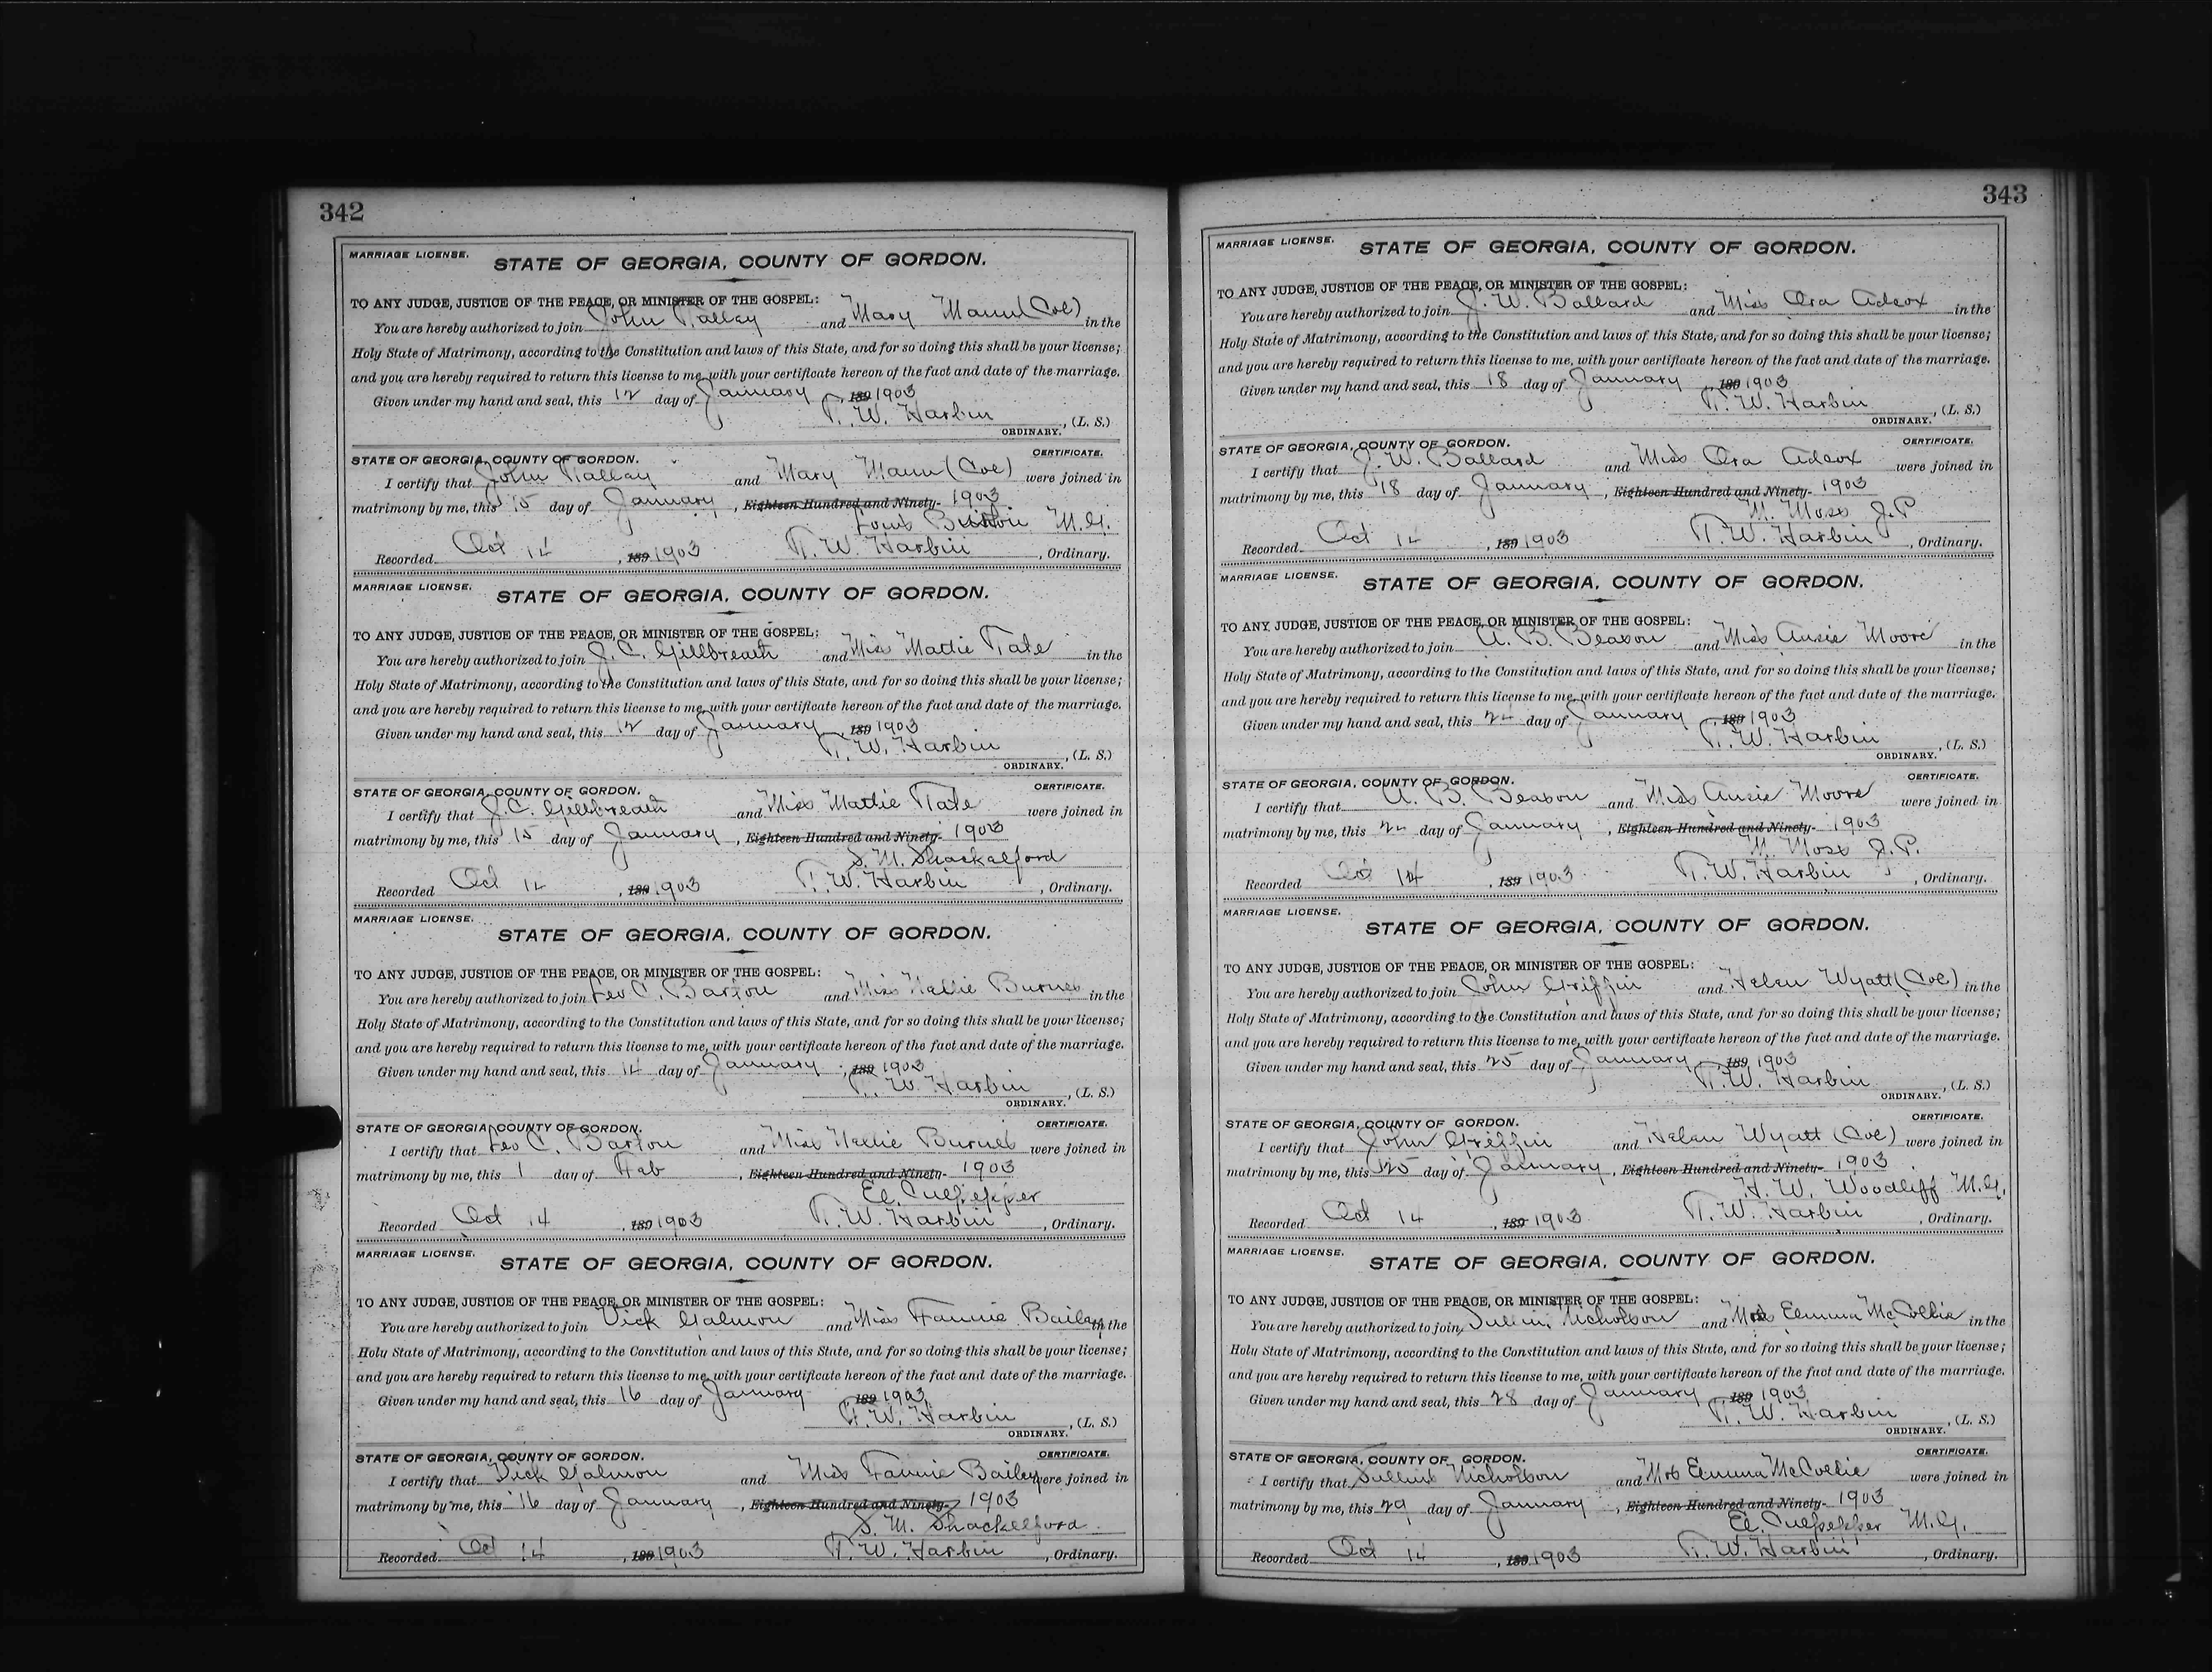 342
MARRIAGE LICENSE.
STATE OF GEORGIA, COUNTY OF GORDON.
TO ANY JUDGE, JUSTICE OF THE PEACE, OR MINISTER OF THE GOSPEL:
You are hereby authorized to join John Talley and Mary Mann (Col) in the
Holy State of Matrimony, according to the Constitution and laws of this State, and for so doing this shall be your license;
and you are hereby required to return this license to me, with your certificate hereon of the fact and date of the marriage.
Given under my hand and seal, this 12 day of January, 189 1903
T. W. Harbin, (L. S.)
ORDINARY.
STATE OF GEORGIA, COUNTY OF GORDON. CERTIFICATE.
I certify that John Talley and Mary Mann (Col) were joined in
matrimony by me, this 15 day of January, Eighteen Hundred and Ninety- 1903
Louis M.G.
Recorded Oct 14, 189 1903 T. W. Harbin, Ordinary.
MARRIAGE LICENSE.
STATE OF GEORGIA, COUNTY OF GORDON.
TO ANY JUDGE, JUSTICE OF THE PEACE, OR MINISTER OF THE GOSPEL:
You are hereby authorized to join J. C. Gillbreath and Miss Mattie Tate in the
Holy State of Matrimony, according to the Constitution and laws of this State, and for so doing this shall be your license;
and you are hereby required to return this license to me, with your certificate hereon of the fact and date of the marriage.
Given under my hand and seal, this 12 day of January, 189 1903
T. W. Harbin, (L. S.)
ORDINARY.
STATE OF GEORGIA, COUNTY OF GORDON. CERTIFICATE.
I certify that J. C. Gillbreath and Miss Mattie Tate were joined in
matrimony by me, this 15 day of January, Eighteen Hundred and Ninety- 1903
S. M. Shackelford
Recorded Oct 14, 189 1903 T. W. Harbin, Ordinary.
MARRIAGE LICENSE.
STATE OF GEORGIA, COUNTY OF GORDON.
TO ANY JUDGE, JUSTICE OF THE PEACE, OR MINISTER OF THE GOSPEL:
You are hereby authorized to join Leo C. Barton and Miss Nellie Burnes in the
Holy State of Matrimony, according to the Constitution and laws of this State, and for so doing this shall be your license;
and you are hereby required to return this license to me, with your certificate hereon of the fact and date of the marriage.
Given under my hand and seal, this 14 day of January, 189 1903
T. W. Harbin, (L. S.)
ORDINARY.
STATE OF GEORGIA, COUNTY OF GORDON. CERTIFICATE.
I certify that Leo C. Barton and Miss Nellie Burnes were joined in
matrimony by me, this 1 day of Feb, Eighteen Hundred and Ninety- 1903
El. Culpepper
Recorded Oct 14, 189 1903 T. W. Harbin, Ordinary.
MARRIAGE LICENSE.
STATE OF GEORGIA, COUNTY OF GORDON.
TO ANY JUDGE, JUSTICE OF THE PEACE, OR MINISTER OF THE GOSPEL:
You are hereby authorized to join Dick Galmon and Miss Fannie Bailey in the
Holy State of Matrimony, according to the Constitution and laws of this State, and for so doing this shall be your license;
and you are hereby required to return this license to me, with your certificate hereon of the fact and date of the marriage.
Given under my hand and seal, this 16 day of January 189 1903
T. W. Harbin, (L. S.)
ORDINARY.
STATE OF GEORGIA, COUNTY OF GORDON. CERTIFICATE.
I certify that Dick Galmon and Miss Fannie Bailey were joined in
matrimony by me, this 16 day of January, Eighteen Hundred and Ninety- 1903
S. M. Shackelford
Recorded Oct 14, 189 1903 T. W. Harbin, Ordinary.
343
MARRIAGE LICENSE.
STATE OF GEORGIA, COUNTY OF GORDON.
TO ANY JUDGE, JUSTICE OF THE PEACE, OR MINISTER OF THE GOSPEL:
You are hereby authorized to join J. W. Ballard and Miss Ora Adcox in the
Holy State of Matrimony, according to the Constitution and laws of this State, and for so doing this shall be your license;
and you are hereby required to return this license to me, with your certificate hereon of the fact and date of the marriage.
Given under my hand and seal, this 18 day of January, 189 1903
T. W. Harbin, (L. S.)
ORDINARY.
STATE OF GEORGIA, COUNTY OF GORDON. CERTIFICATE.
I certify that J. W. Ballard and Miss Ora Adcox were joined in
matrimony by me, this 18 day of January, Eighteen Hundred and Ninety- 1903
M. Moss J.P
Recorded Oct 14, 189 1903 T. W. Harbin, Ordinary.
MARRIAGE LICENSE.
STATE OF GEORGIA, COUNTY OF GORDON.
TO ANY JUDGE, JUSTICE OF THE PEACE, OR MINISTER OF THE GOSPEL:
You are hereby authorized to join A. B. Beason and Miss Ansie Moore in the
Holy State of Matrimony, according to the Constitution and laws of this State, and for so doing this shall be your license;
and you are hereby required to return this license to me, with your certificate hereon of the fact and date of the marriage.
Given under my hand and seal, this 24 day of January, 189 1903
T. W. Harbin, (L. S.)
ORDINARY.
STATE OF GEORGIA, COUNTY OF GORDON. CERTIFICATE.
I certify that A. B. Beason and Miss Ansie Moore were joined in
matrimony by me, this 24 day of January, Eighteen Hundred and Ninety- 1903
M. Moss J.P.
Recorded Oct 14, 189 1903 T. W. Harbin, Ordinary.
MARRIAGE LICENSE.
STATE OF GEORGIA, COUNTY OF GORDON.
TO ANY JUDGE, JUSTICE OF THE PEACE, OR MINISTER OF THE GOSPEL:
You are hereby authorized to join John Griffin and Helen Wyatt (Col) in the
Holy State of Matrimony, according to the Constitution and laws of this State, and for so doing this shall be your license;
and you are hereby required to return this license to me, with your certificate hereon of the fact and date of the marriage.
Given under my hand and seal, this 25 day of January, 189 1903
T. W. Harbin, (L. S.)
ORDINARY.
STATE OF GEORGIA, COUNTY OF GORDON. CERTIFICATE.
I certify that John Griffin and Helen Wyatt (Col) were joined in
matrimony by me, this 25 day of January, Eighteen Hundred and Ninety- 1903
H. W. Woodliff M.G.
Recorded Oct 14, 189 1903 T. W. Harbin, Ordinary.
MARRIAGE LICENSE.
STATE OF GEORGIA, COUNTY OF GORDON.
TO ANY JUDGE, JUSTICE OF THE PEACE, OR MINISTER OF THE GOSPEL:
You are hereby authorized to join Nicholson and Mrs Emma McCollie in the
Holy State of Matrimony, according to the Constitution and laws of this State, and for so doing this shall be your license;
and you are hereby required to return this license to me, with your certificate hereon of the fact and date of the marriage.
Given under my hand and seal, this 28 day of January, 189 1903
T. W. Harbin, (L. S.)
ORDINARY.
STATE OF GEORGIA, COUNTY OF GORDON. CERTIFICATE.
I certify that Sullins Nicholson and Mrs Emma McCollie were joined in
matrimony by me, this 29 day of January, Eighteen Hundred and Ninety- 1903
El. Culpepper M.G.
Recorded Oct 14, 189 1903 T. W. Harbin, Ordinary.